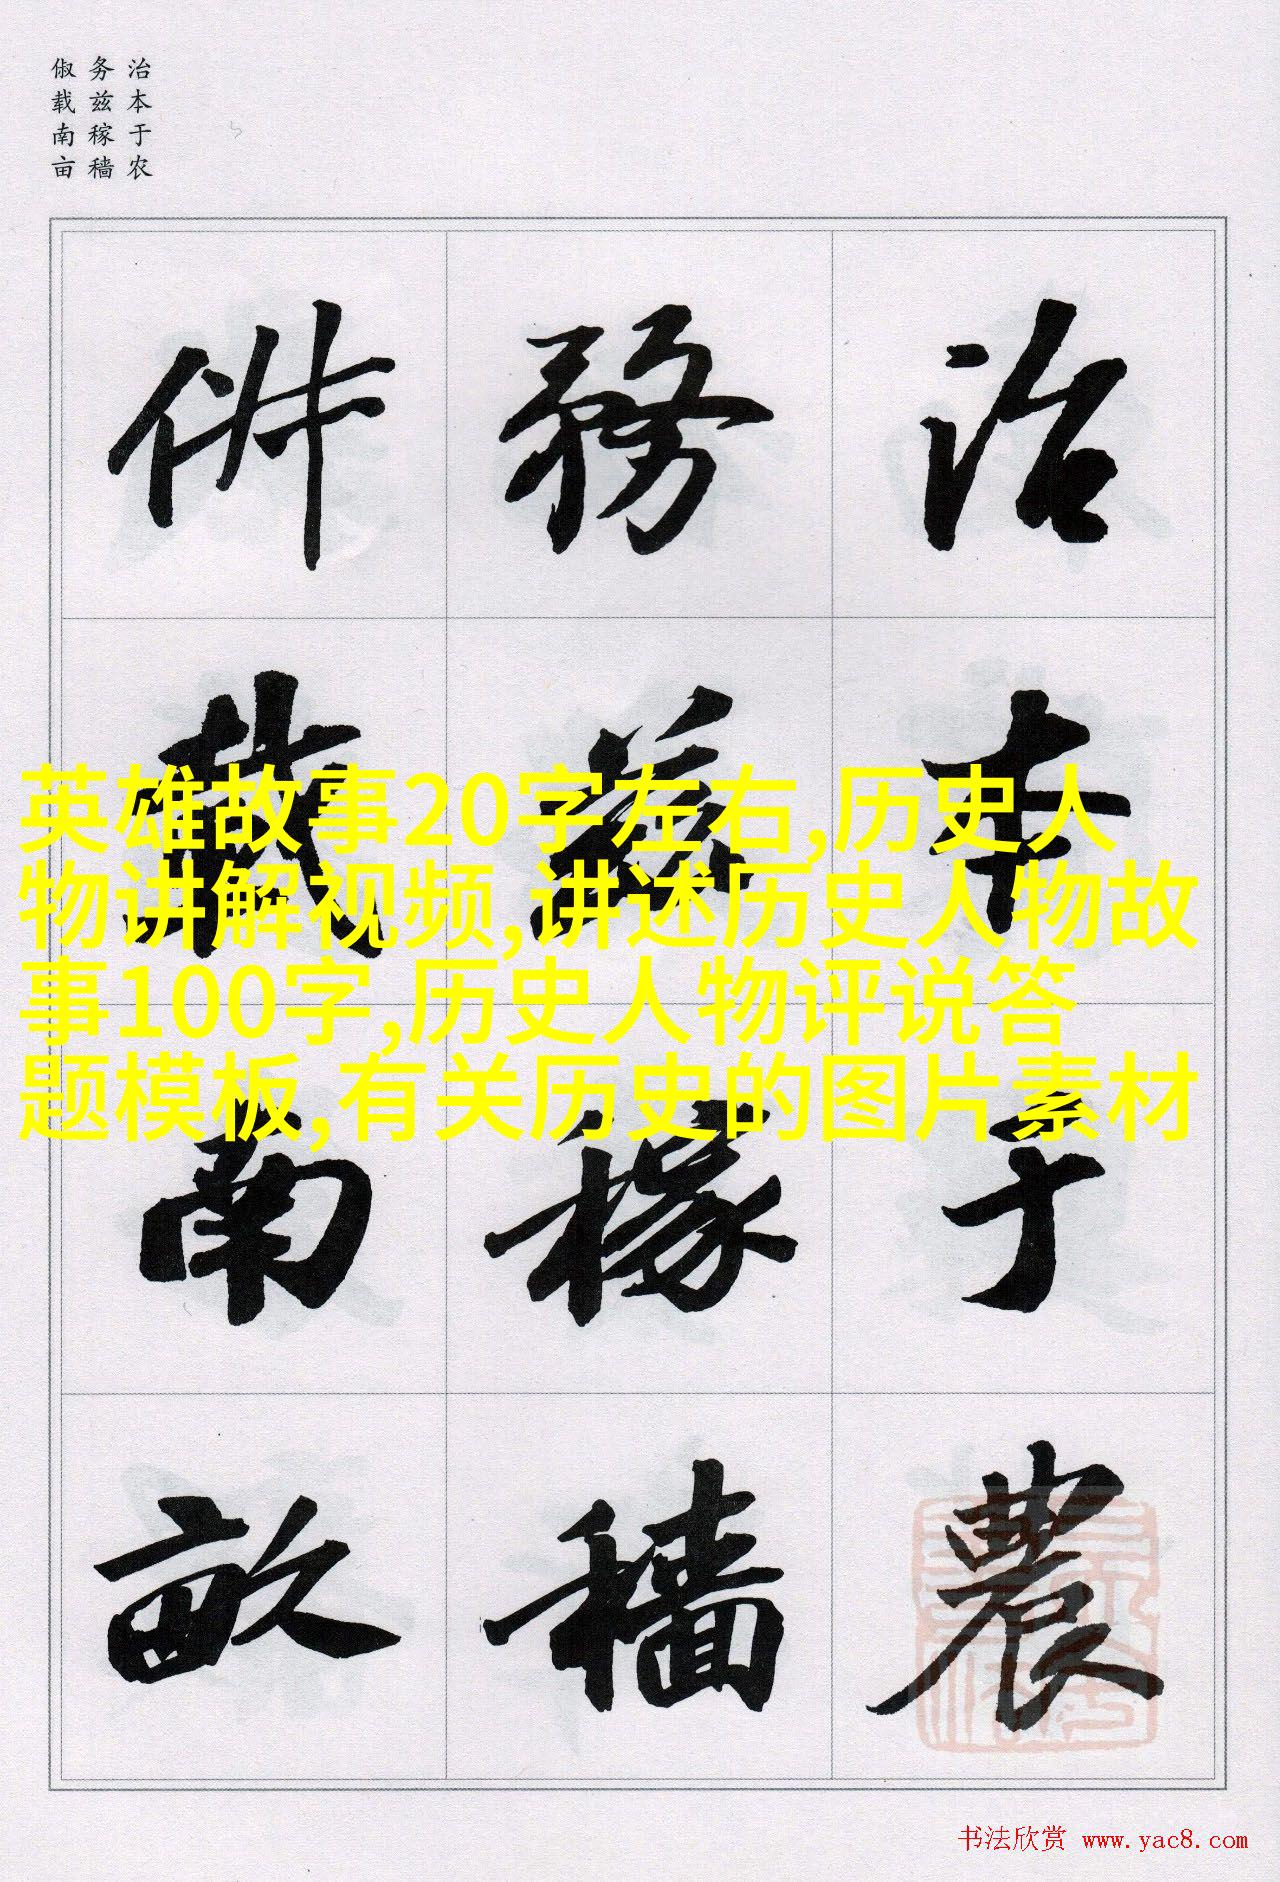 治本于农
务兹稼穑
俶载南亩
治本于農
務兹稼穡
俶載南畝
英雄故事20字左右,历史人
物讲解视频,讲述历史人物故
事100字,历史人物评说答
题模板,有关历史的图片素材
书法欣赏 www.yac8.com